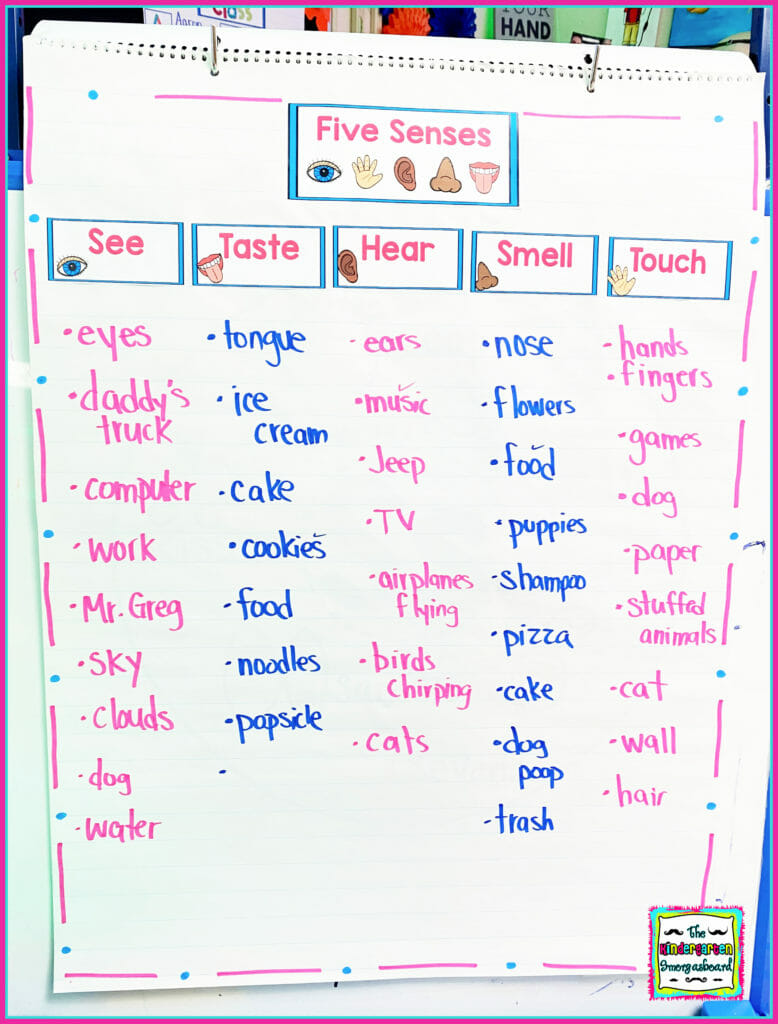 Class
A
Aaron
YOUR
HAND
Five Senses
See
Taste
Hear
Smell
Touch
• eyes
• daddy's
truck
• computer
• work
• Mr. Greg
• sky
• clouds
• dog
• water
• tongue
• ice
cream
• cake
• cookies
• food
• noodles
• popsicle
•
• ears
• music
• Jeep
• TV
• airplanes
flying
• birds
chirping
• cats
• nose
• flowers
• food
• puppies
• shampoo
• pizza
• cake
• dog
poop
• trash
• hands
• fingers
• games
• dog
• paper
• stuffed
animals
• cat
• wall
• hair
The
Kindergarten
Smorgasboard